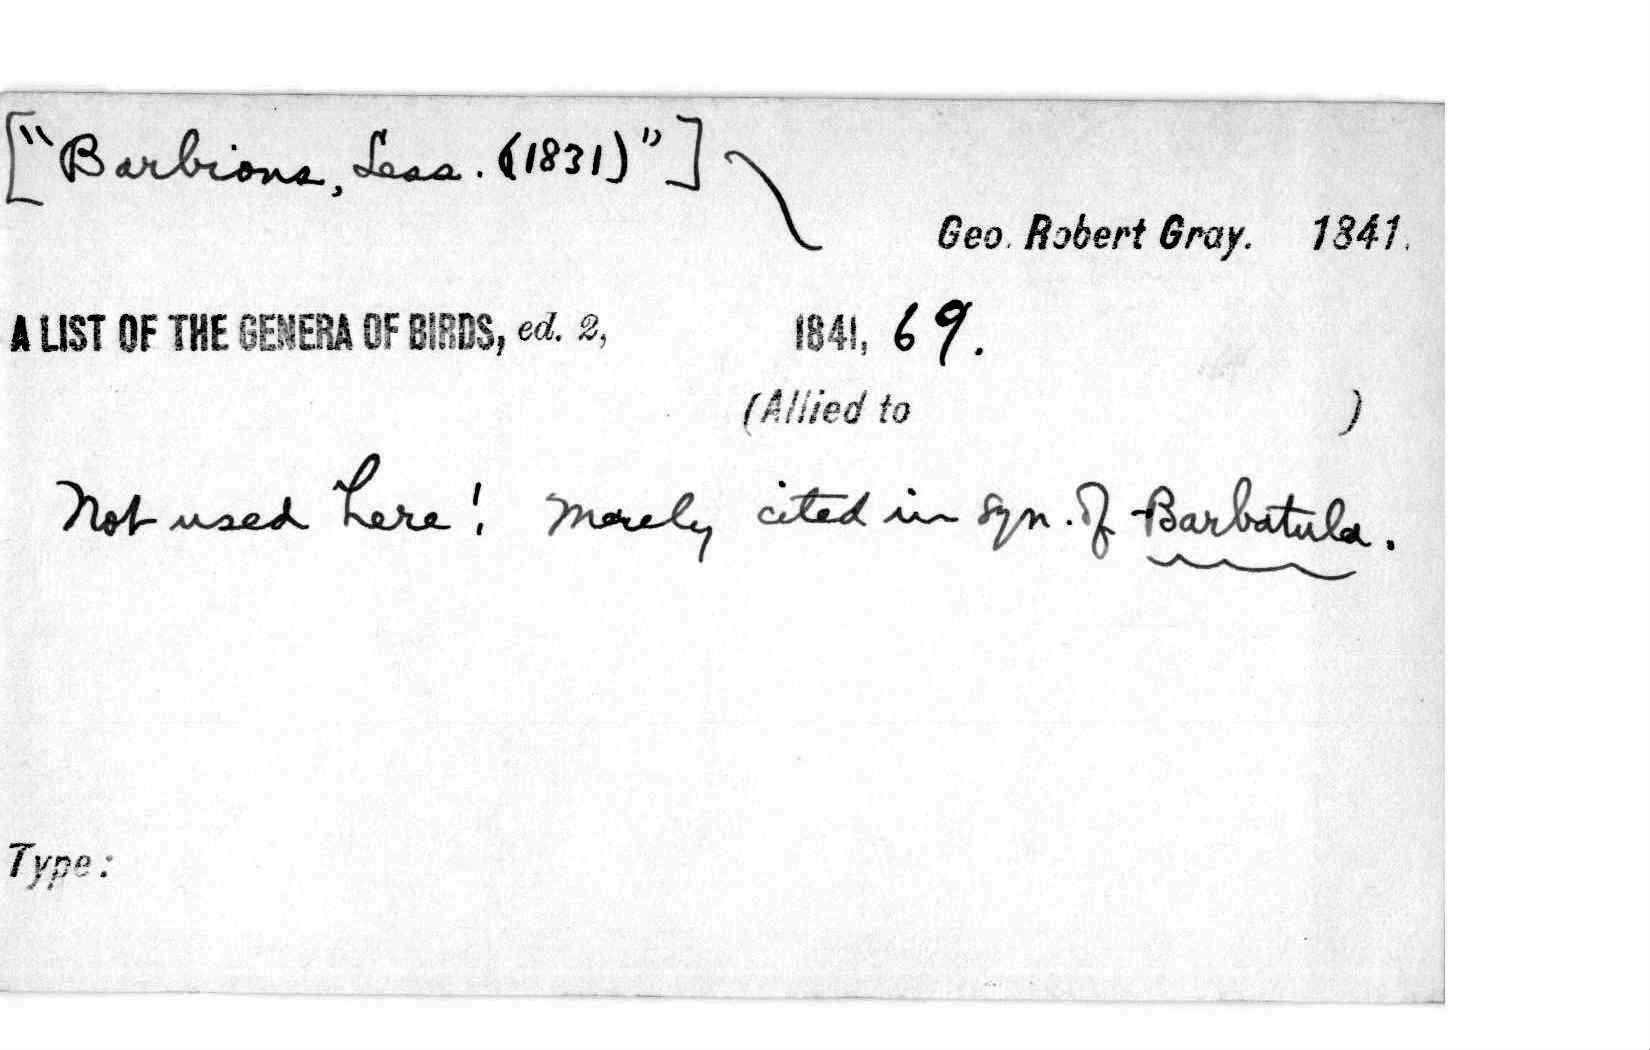 ["Barbions, Less. (1831)"]
Geo. Robert Gray. 1841.
A LIST OF THE GENERA OF BIRDS, ed. 2, 1841, 69.
(Allied to )
Not used here! Merely cited in syn. of Barbatula.
Type: